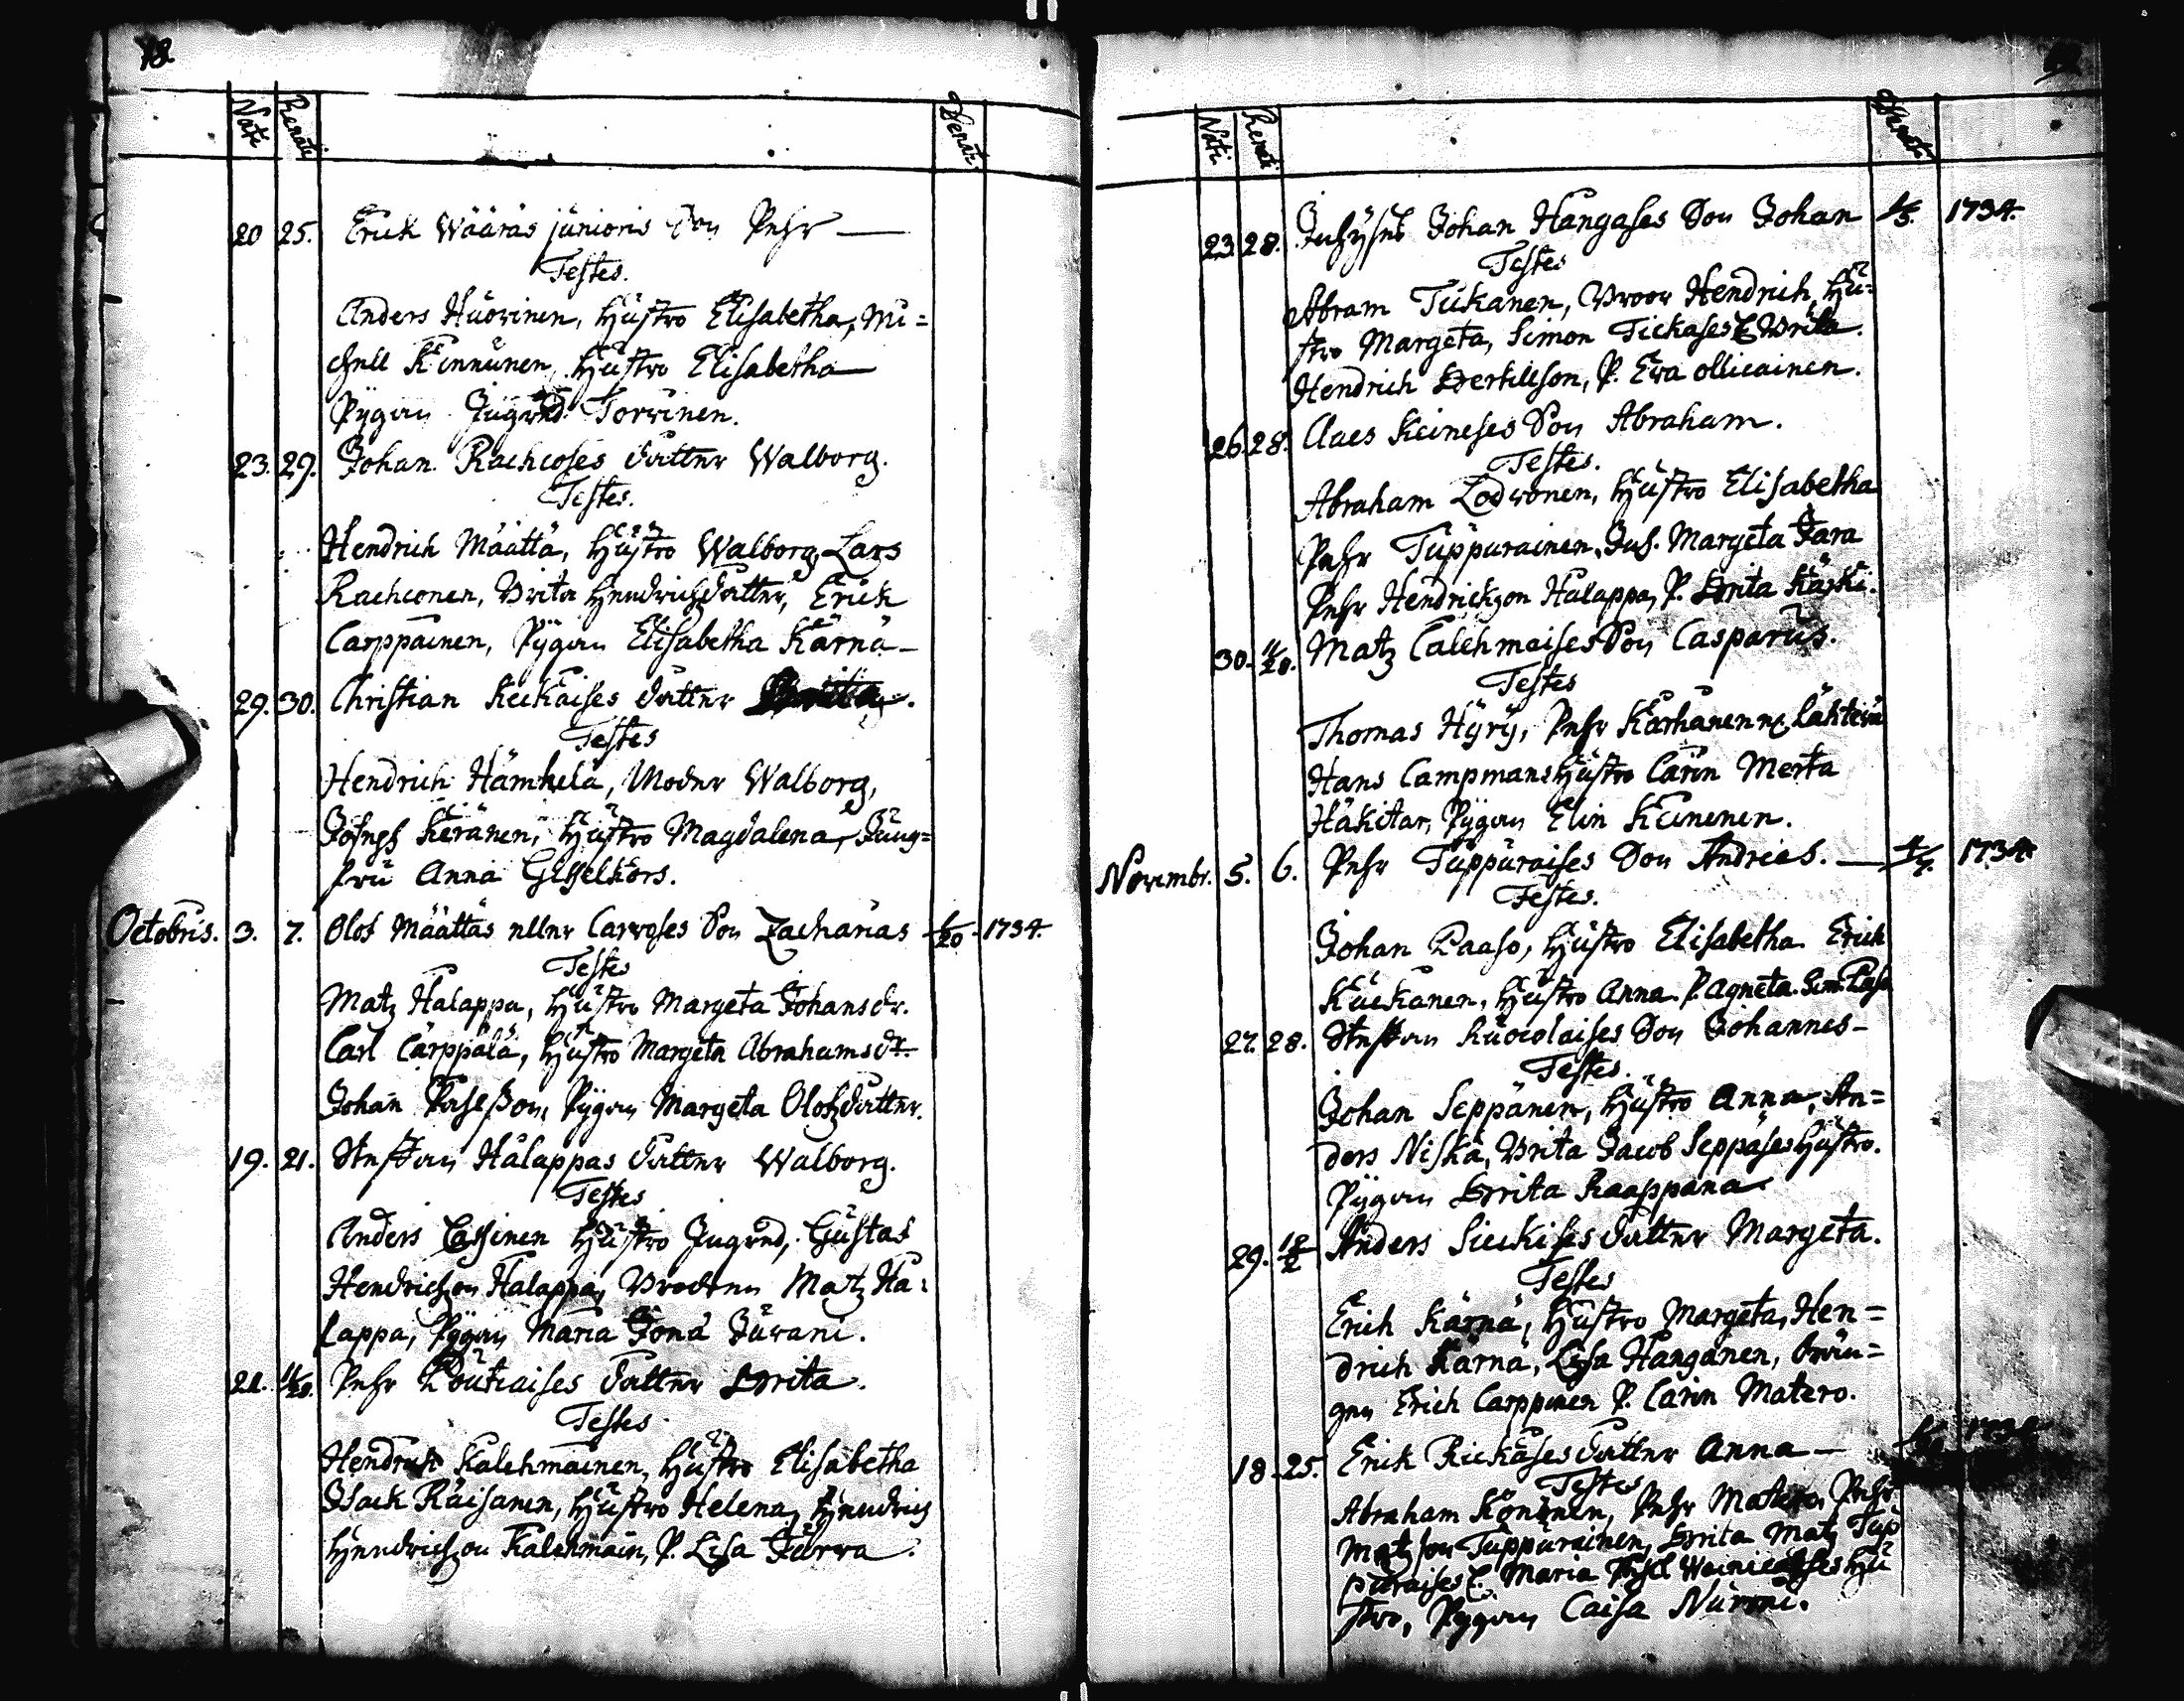 18
Nati Renati Denati
20 25. Erick Wääräs junioris Son Pehr —
Testes.
Anders Huovinen, Hustro Elisabetha, Mi=
chell Kinnunen, Hustro Elisabetha
Pygan Ingred Torvinen.
23. 29. Johan Rachcoses dotter Walborg.
Testes.
Hendrich Määttä, Hustro Walborg, Lars
Rachconen, Brita Hendrichzdotter, Erick
Carppainen, Pygan Elisabetha Kärnä —
29. 30. Christian Keckäises dotter
Testes
Hendrich Hämhelä, Moder Walborg,
Keränen, Hustro Magdalena, Jung=
fru Anna
Octobris. 3. 7. Olof Määttäs eller Carvoses Son Zacharias 1734.
Testes
Matz Halappa, Hustro Margeta Johansdr.
Carl Carppala, Hustro Margeta Abrahamsdr.
Johan Pehrsson, Pygan Margeta Olofzdotter.
19. 21. Steffan Halappas dotter Walborg.
Testes
Anders Hustro Ingred, Gustaf
Hendrichzon Halappa, Brodren Matz Ha=
lappa, Pygan Maria Juvani.
Pehr dotter Brita.
Testes
Hendrich Kalehmainen, Hustro Elisabetha
Isack Räisanen, Hustro Helena, Hendrich
Hendrichzon Kalehmain, P. Lisa
Nati Renati Denati
23. 28. Inhyses Johan Hangases Son Johan 1734.
Testes
Abram Tükanen, Broor Hendrich, Hu=
stro Margeta, Simon Brita
Hendrich Bertillson, P. Ewa ollicainen.
26. 28. Claes Keineses Son Abraham.
Testes.
Abraham Hustro Elisabetha
Pehr Tuppurainen, Inh. Margeta Jara
Pehr Hendrickzon Halappa, P. Brita
30. Matz Calehmaises Son Casparus.
Testes
Thomas Hyry, Pehr
Hans Campmans Hustro Carin Merta
Häkitar, Pygan Elin Keinenen.
Novembr. 5. 6. Pehr Tuppuraises Son Andreas. — 1734
Testes.
Johan Paaso, Hustro Elisabetha. Erich
Kuckanen, Hustro Anna. P. Agneta.
27. 28. Steffan Son Johannes —
Testes.
Johan Seppänen, Hustro Anna, An=
ders Niska, Brita Jacob Seppäses Hustro.
Pygan Brita Kaappana
29. 18/2 Anders dotter Margeta.
Testes
Erich Kärnä, Hustro Margeta, Hen=
drich Kärnä, Lisa Hanganen, Drän=
gen Erich Carppinen P. Carin Matero.
18 25. Erik dotter Anna —
Testes
Abraham Könönen, Pehr Matero, Pehr
Matzson Tuppurainen, Brita Matz Tup
puraises Maria Hu
stro, Pygan Caisa Nurmi.